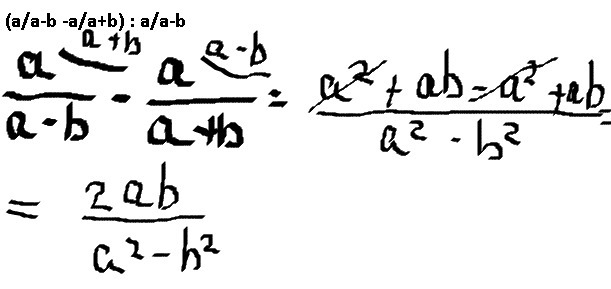 (a/a-b -a/a+b) : a/a-b
a/(a-b) a+b - a/(a+b) a-b = (a² + ab - a² + ab)/(a² - b²) =
= 2ab/(a² - b²)